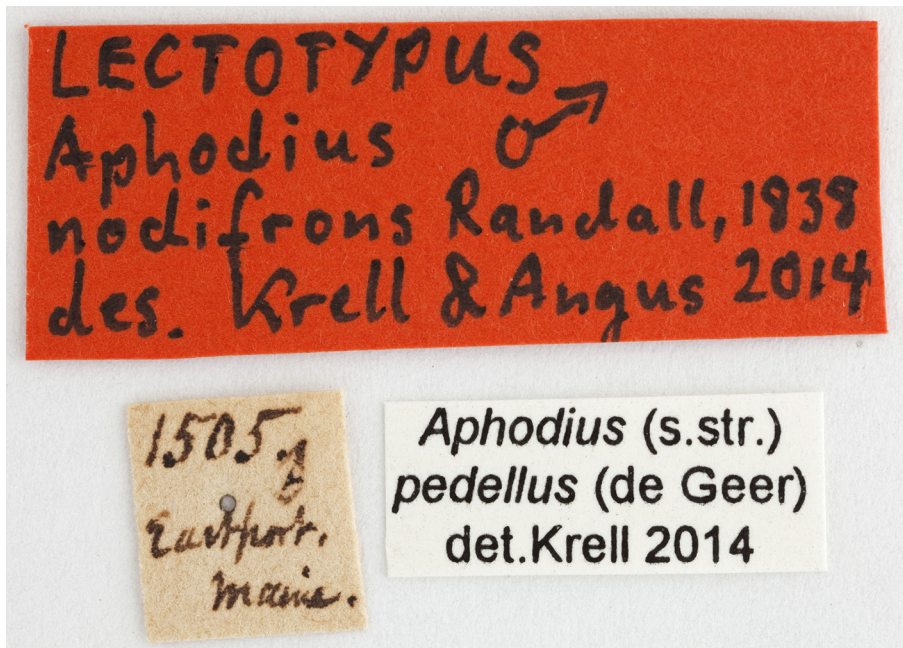 LECTOTYPUS
Aphodius ♂
nodifrons Randall, 1838
des. Krell & Angus 2014
1505.
Eastport.
Maine.
Aphodius (s.str.)
pedellus (de Geer)
det.Krell 2014